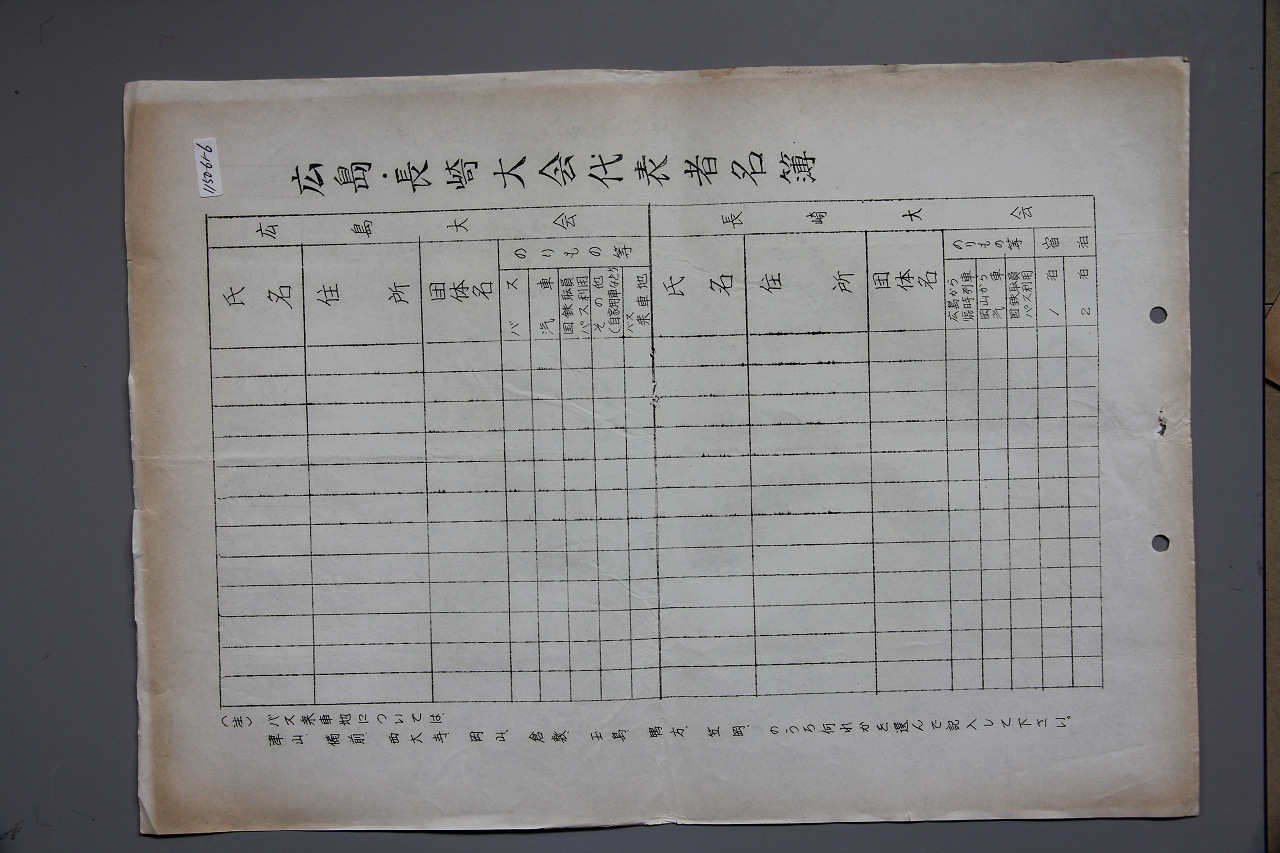 115019-9
広島・長崎大会代表者名簿
広島大会
氏名
住所
団体名
のりもの等
バス
汽車
国鉄職員パス利用
その他(自家用車など)
バス乗車地
長崎大会
氏名
住所
団体名
のりもの等
広島から臨時列車
岡山から汽車
国鉄職員パス利用
宿泊
1泊
2泊
(注) バス乗車地については、
津山、備前、西大寺、岡山、倉敷、玉島、鴨方、笠岡、のうち何れかを選んで記入して下さい。